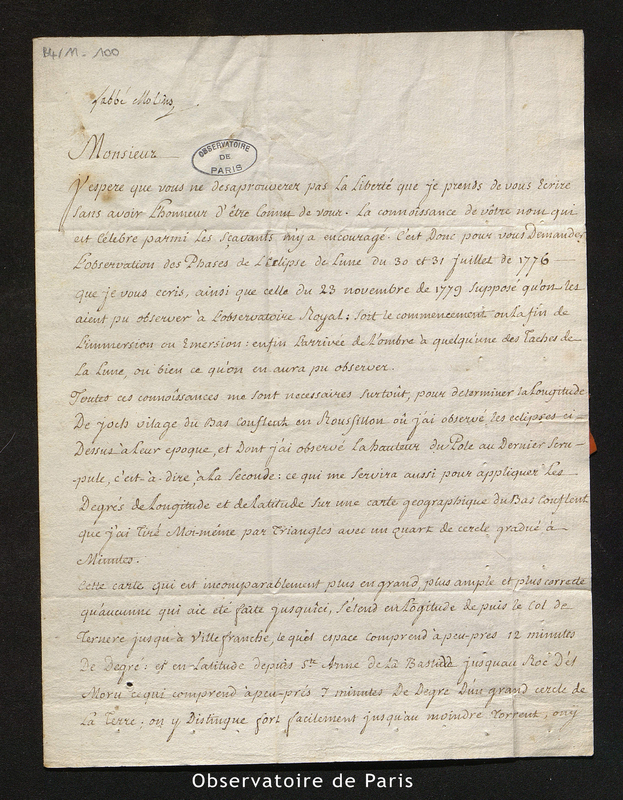 B4/11-100
l'abbé Molins
Monsieur
OBSERVATOIRE
DE
PARIS
J'espere que vous ne desaprouverez pas la Liberté que je prends de vous Ecrire
sans avoir L'honneur d'être Connu de vous. La connoissance de vôtre nom qui
est Célébre parmi Les Sçavants m'y a encouragé. C'est Donc pour vous Demander
L'observation des Phases de L'Eclipse de Lune du 30 et 31 juillet de 1776
que je vous ecris, ainsi que celle du 23 novembre de 1779 supposé qu'on les
aient pu observer à L'observatoire Royal: soit le commencement ou La fin de
L'immersion ou Emersion: enfin L'arrivée de L'ombre à quelqu'une des Taches de
La Lune, ou bien ce qu'on en aura pu observer.
Toutes ces connoissances me sont necessaires surtout, pour determiner la Longitude
De jochs vilage du Bas Conflent en Roussillon où j'ai observé les eclipses ci-
Dessus à Leur epoque, et Dont j'ai observé La hauteur du Pole au Dernier scru-
pule, c'est-à-dire, à La Seconde: ce qui me servira aussi pour appliquer Les
Degrés de Longitude et de Latitude sur une carte geographique du Bas Conflent
que j'ai Tiré Moi-même par Triangles avec un quart de cercle gradué à
Minutes.
Cette carte qui est incomparablement plus en grand plus ample et plus correcte
qu'aucunne qui aie été faite jusqu'ici, s'étend en Logitude depuis le Col de
Ternere jusqu-à Villefranche, le quel espace comprend àpeu-près 12 minutes
De Degré: et en Latitude depuis Ste Anne de La Bastide jusqu'au Roc D'es
Moru ce qui comprend àpeu-près 7 minutes De Degre D'un grand cercle de
La Terre: on y Distingue fort facilement jusqu'au moindre Torrent, on y
Observatoire de Paris